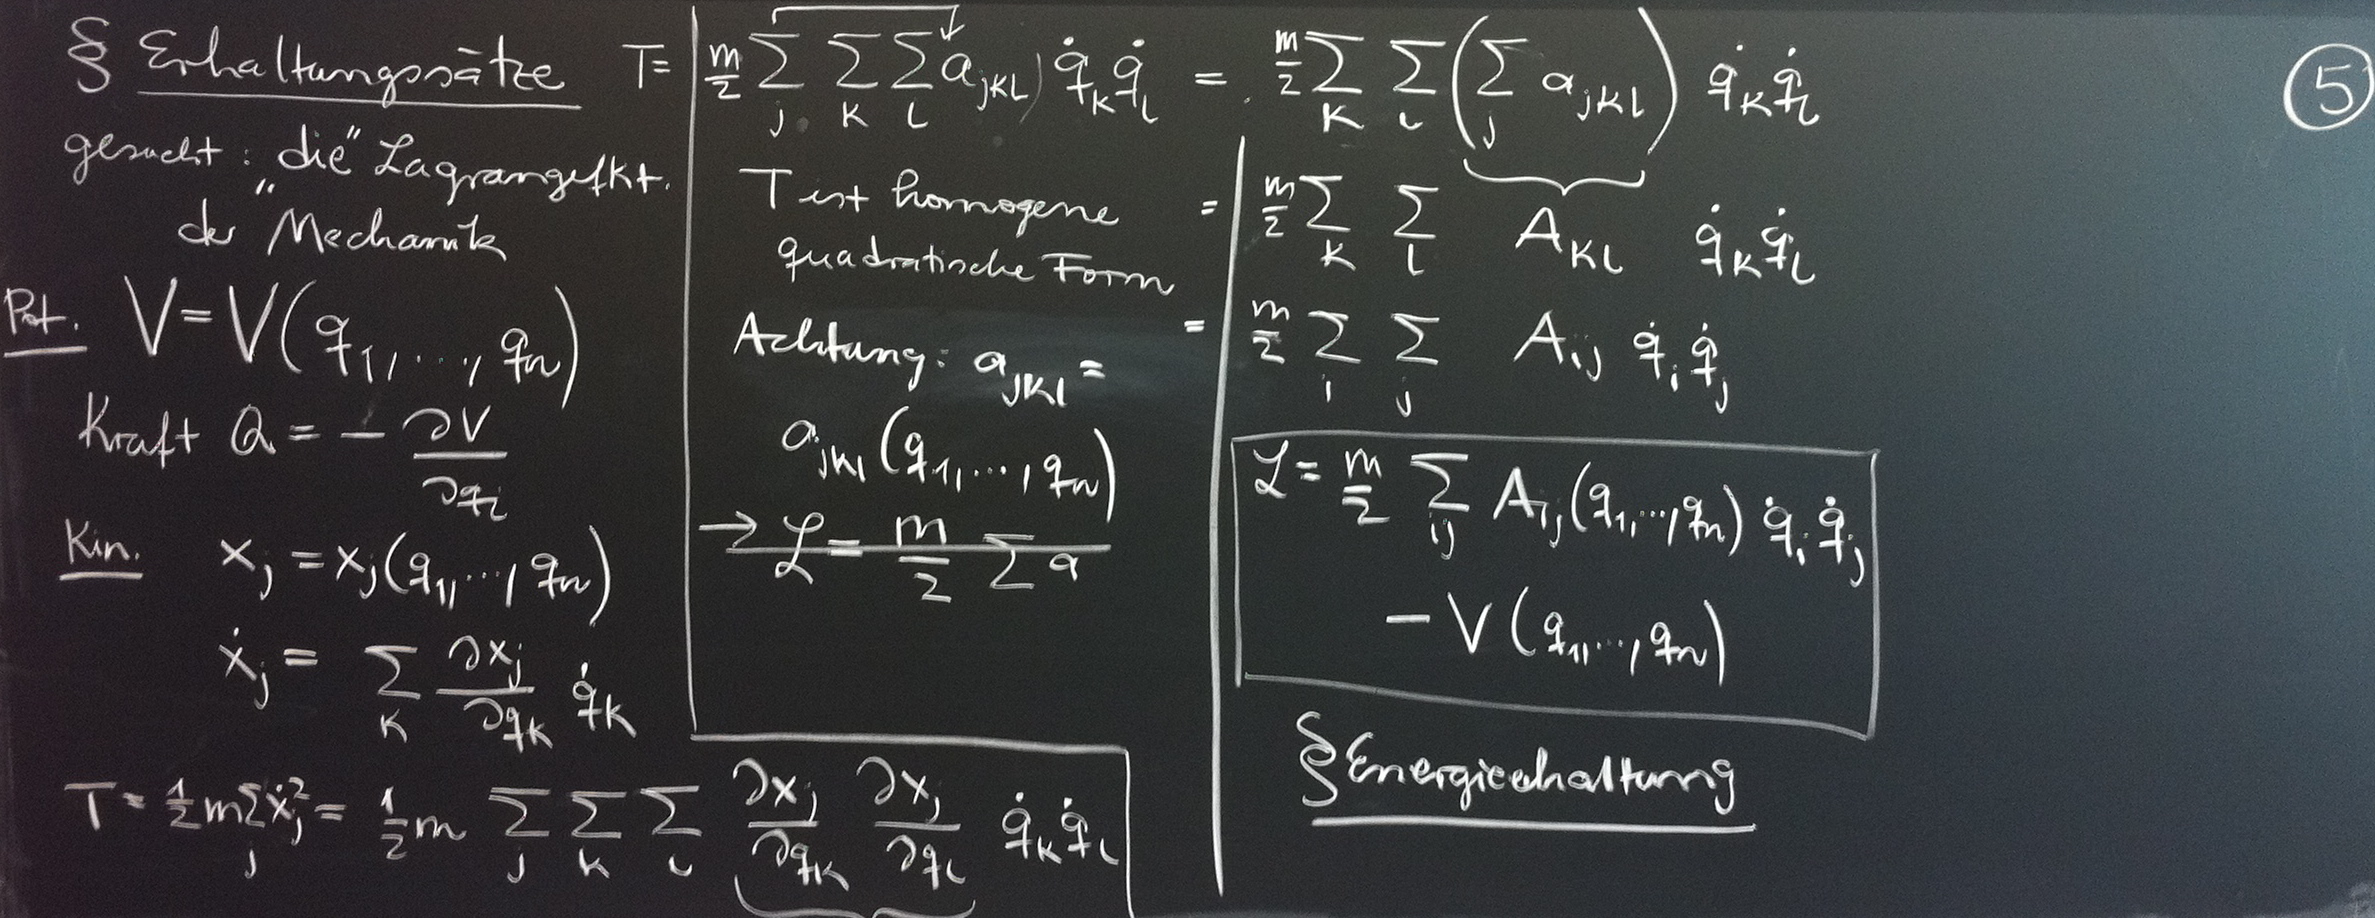 § Erhaltungssätze
gesucht: „die" Lagrangefkt.
der Mechanik
Pot. V = V(q₁, ..., qₙ)
Kraft Q = - ∂V/∂qᵢ
Kin. xⱼ = xⱼ(q₁, ..., qₙ)
ẋⱼ = Σ_K ∂xⱼ/∂q_K q̇_K
T = ½ m Σ_j ẋⱼ² = ½ m Σ_j Σ_k Σ_l ∂xⱼ/∂q_K ∂xⱼ/∂q_l q̇_K q̇_l
T = m/2 Σ_j Σ_K Σ_l a_jKl) q̇_K q̇_l = m/2 Σ_K Σ_l (Σ_j a_jKl) q̇_K q̇_l
T ist homogene
quadratische Form
Achtung: a_jKl =
a_jKl (q₁, ..., qₙ)
→ ℒ = m/2 Σ a
= m/2 Σ_K Σ_l A_Kl q̇_K q̇_l
= m/2 Σ_i Σ_j A_ij q̇_i q̇_j
ℒ = m/2 Σ_ij A_ij(q₁, ..., qₙ) q̇_i q̇_j
- V(q₁, ..., qₙ)
§ Energieerhaltung
5